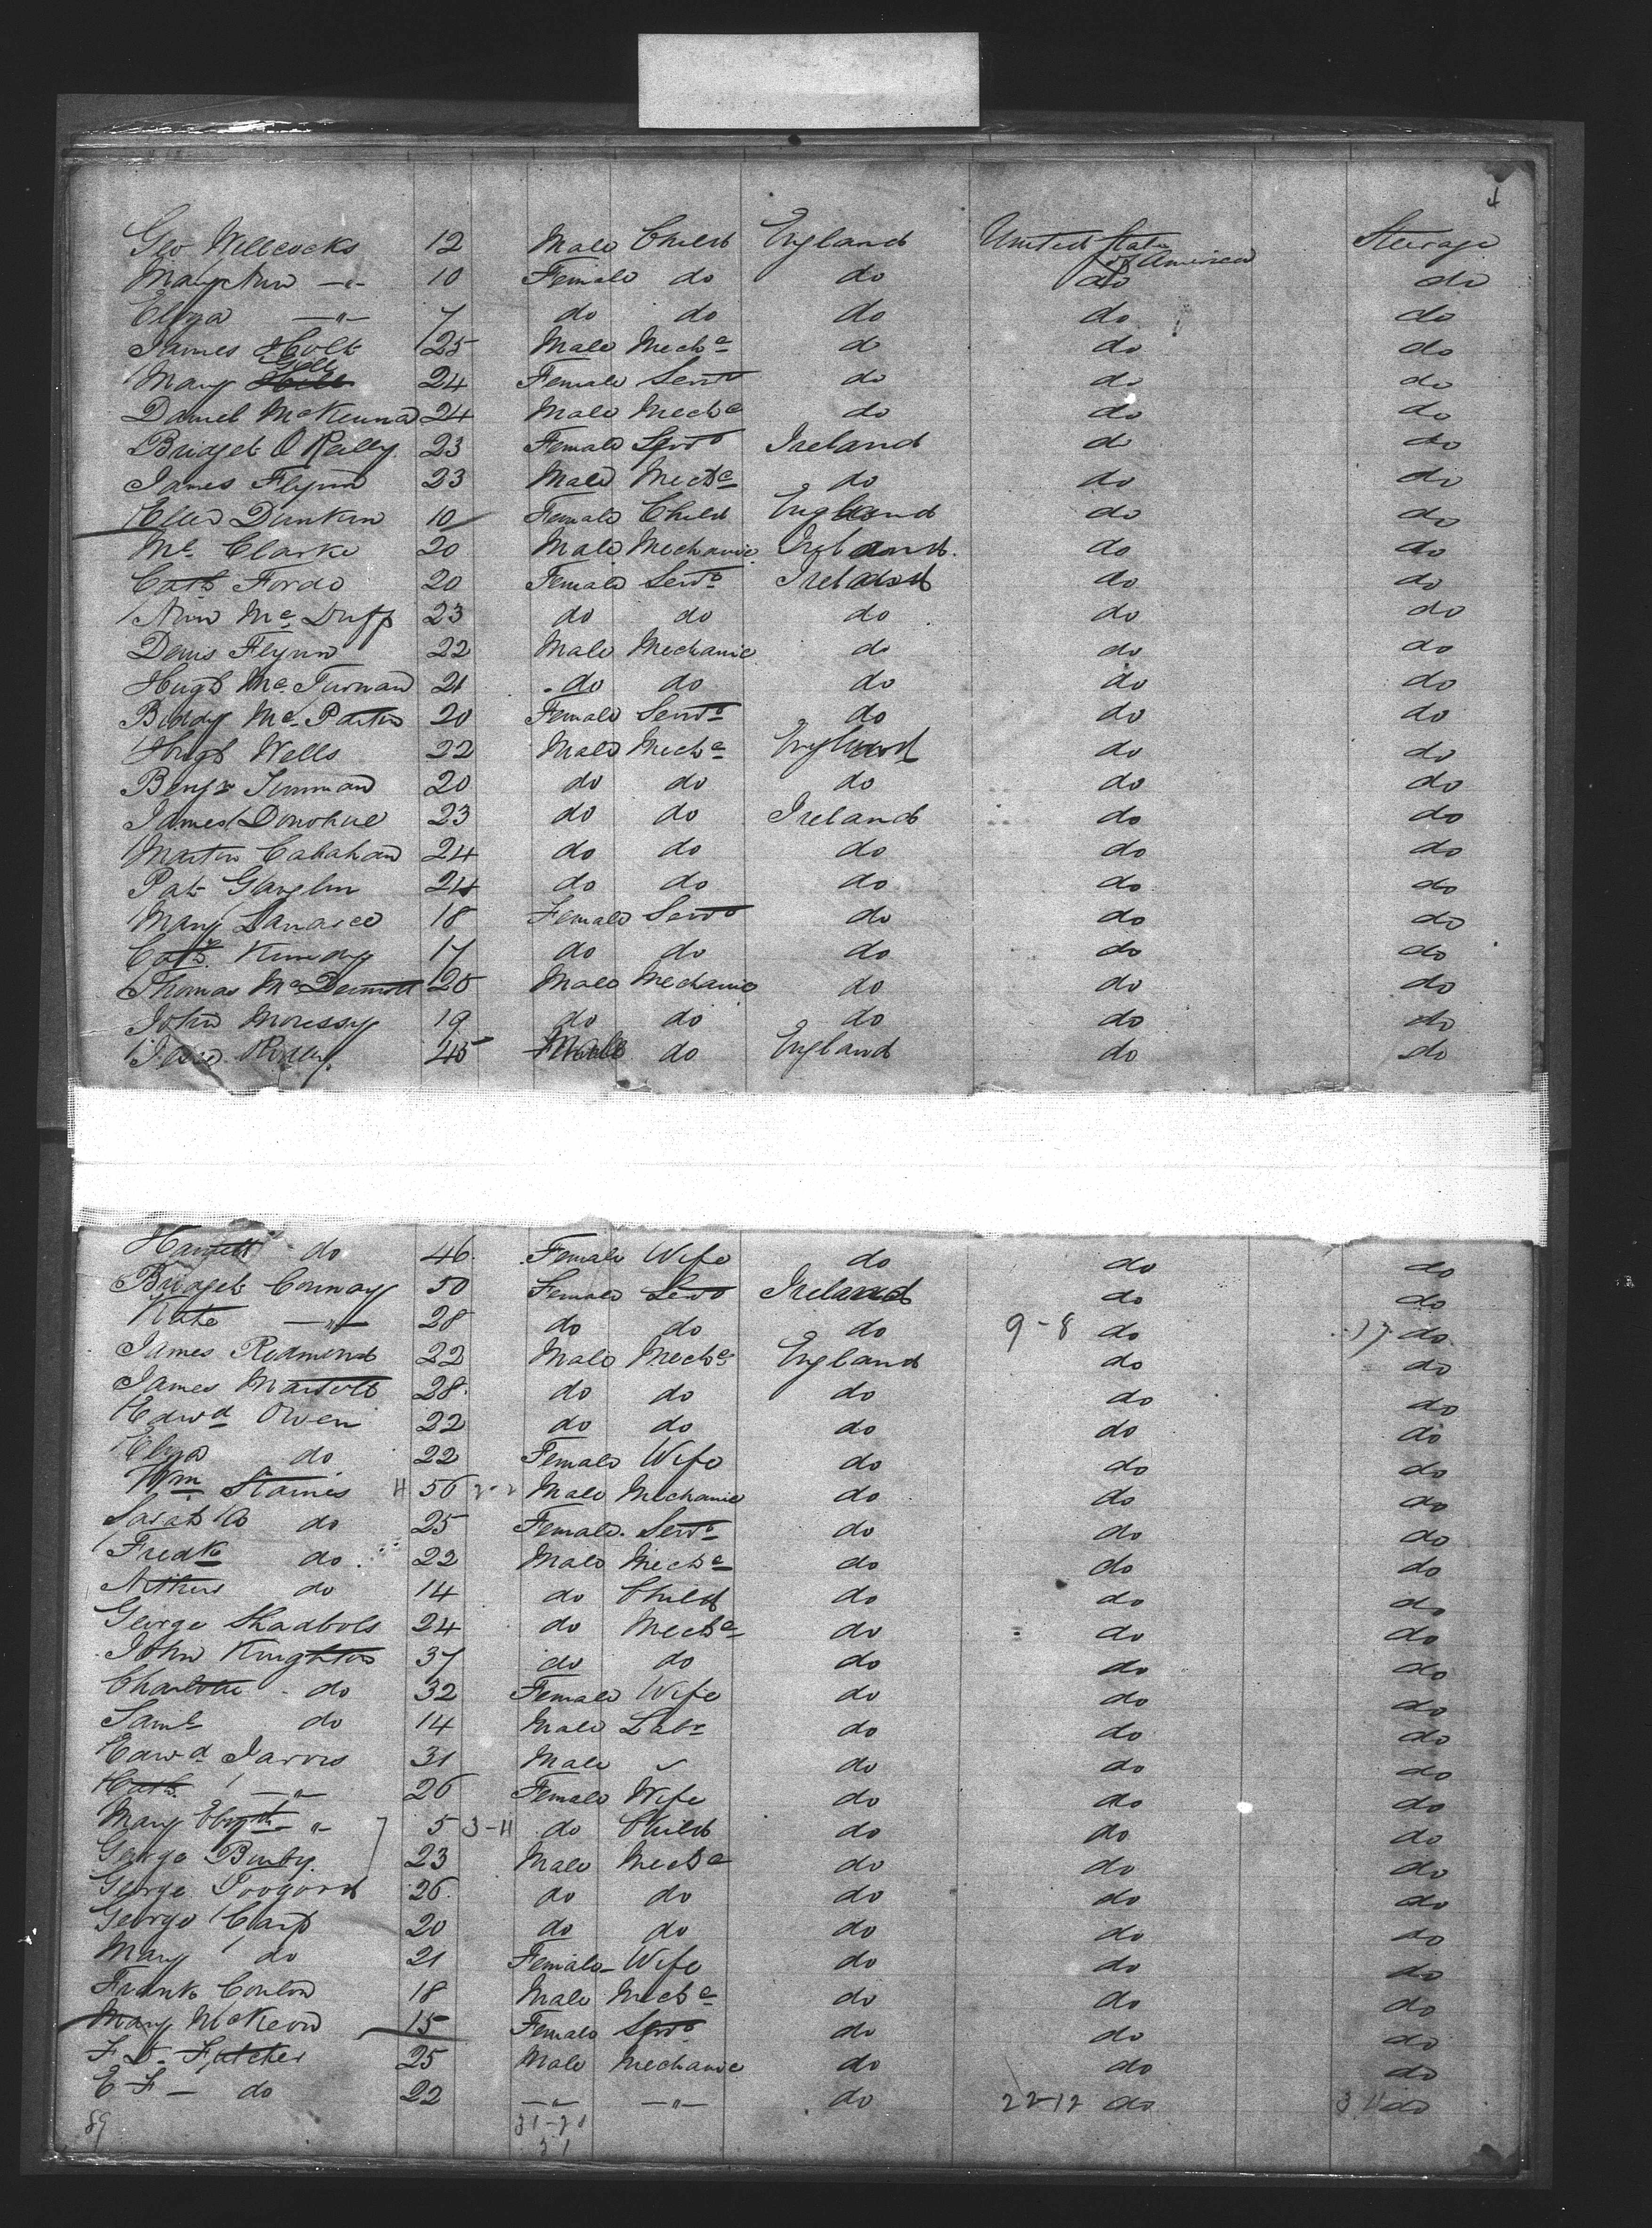 Geo Willcocks 12 Male Child England United States of America Steerage
Mary Ann -"- 10 Female do do do do
Eliza -"- 7 do do do do do
James Holt 25 Male Mechc d do do
Mary Holt 24 Female Servt do do do
Daniel McKenna 24 Male Mechc do do do
Bridget O Reilly 23 Female Servt Ireland d do
James Flynn 23 Male Mechc do do do
Ellen Dunkin 10 Female Child England do do
Mc Clarke 20 Male Mechanic Ireland do do
Cath Forde 20 Female Servt Ireland do do
Ann Mc Duff 23 do do do do do
Denis Flynn 22 Male Mechanic do do do
Hugh Mc 21 do do do do do
Biddy Mc 20 Female Servt do do do
Hugh Wells 22 Male Mechc England do do
Benjn 20 do do do do do
James Donohue 23 do do Ireland do do
Martin Calahan 24 do do do do do
Pat 24 do do do do do
Mary 18 Female Servt do do do
Cath 17 do do do do do
Thomas McDermott 25 Male Mechanic do do do
John 19 do do do do do
45 Male do England do do
Harriett do 46 Female Wife do do do
Bridget Conway 50 Female Servt Ireland do do
Kate -"- 28 do do do 9-8 do do
James Redmond 22 Male Mechc England do do
James 28 do do do do do
Edwd Owen 22 do do do do do
Eliza do 22 Female Wife do do do
Wm Staines 56 Male Mechanic do do do
Sarah A do 25 Female Servt do do do
Fredk do 22 Male Mechc do do do
Arthur do 14 do Child do do do
George Shadbolt 24 do Mechc do do do
John Knighton 37 do do do do do
Charlotte do 32 Female Wife do do do
Saml do 14 Male Labr do do do
Edwd Jarvis 31 Male do do do
Cath -"- 26 Female Wife do do do
Mary Elizth -"- 5 3-11 do Child do do do
George 23 Male Mechc do do do
George 26 do do do do do
George 20 do do do do do
Mary do 21 Female Wife do do do
Frank Conlon 18 Male Mechc do do do
Mary McKeon 15 Female Servt do do do
F D Futcher 25 Male Mechanic do do do
E F - do 22 -"- -"- do 22-12 do do
89